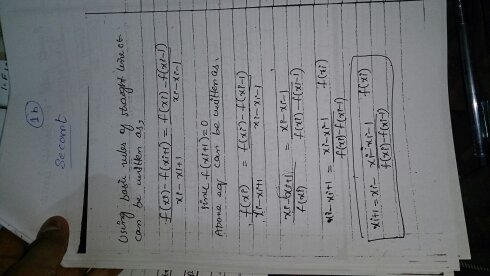 1b
Secant
Using basic rules of straight line it
can be written as,
f(xi) - f(xi+1) / xi - xi+1 = f(xi) - f(xi-1) / xi - xi-1
Since f(xi+1) = 0
Above eqn can be written as,
f(xi) / xi - xi+1 = f(xi) - f(xi-1) / xi - xi-1
xi - (xi+1) / f(xi) = xi - xi-1 / f(xi) - f(xi-1)
xi - xi+1 = xi - xi-1 / f(xi) - f(xi-1) f(xi)
xi+1 = xi - xi - xi-1 / f(xi) - f(xi-1) f(xi)